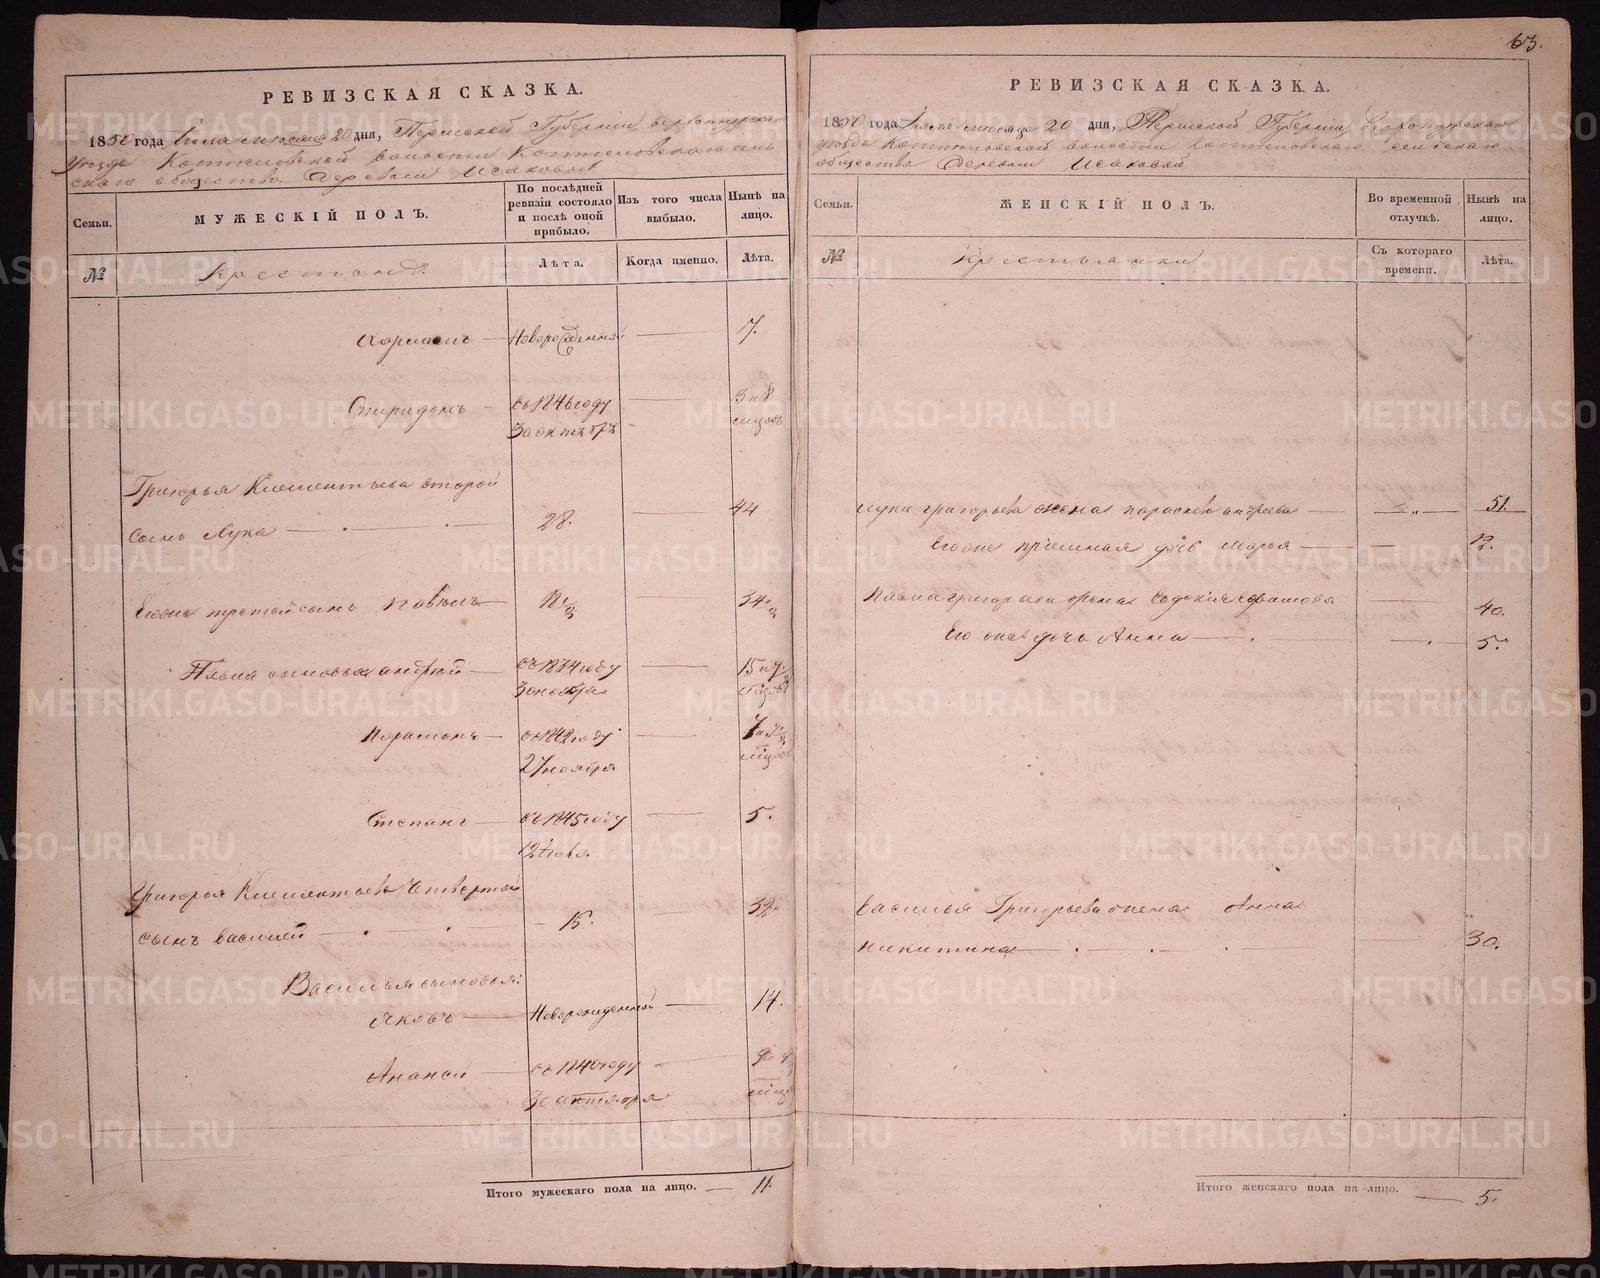 63.
РЕВИЗСКАЯ СКАЗКА.
1850 года Іюня месяца 20 дня, Пермской Губерніи Верхотурскаго
уезда Коптеловской волости Коптеловскаго сель
скаго общества Деревни Исаковой
Семьи.
МУЖЕСКІЙ ПОЛЪ.
По послѣдней ревизіи состояло и послѣ оной прибыло.
Изъ того числа выбыло.
Нынѣ на лицо.
№
Крестьяне
Лѣта.
Когда именно.
Лѣта.
Новорожденной 7.
Спиридонъ съ 1846 году 3 и 8
3 октября месяцовъ
Григорья Клементьева второй
сынъ Лука 28. 44
Егоже третей сынъ Павелъ 18 1/2 34 1/2
Павла сыновья андрей съ 1834 году 15 и 7
3 ноября месяцовъ
Парамонъ съ 1842 году 7 и 7
27 ноября месяцовъ
Степанъ съ 1845 году 5.
12 Іюня
Григорья Клементьева Четвертой
сынъ василей 16. 32.
Василья сыновья:
Яковъ Новорожденной 14.
Ананей съ 1840 году
30 октября
Итого мужескаго пола на лицо. 11.
РЕВИЗСКАЯ СКАЗКА.
1850 года Іюня месяца 20 дня, Пермской Губерніи Верхотурскаго
уезда Коптеловской волости Коптеловскаго сельскаго
общества Деревни Исаковой
Семьи.
ЖЕНСКІЙ ПОЛЪ.
Во временной отлучкѣ.
Нынѣ на лицо.
№
Крестьянки
Съ котораго времени.
Лѣта.
Луки григорьева жена параскева андреева 51.
Егоже пріемная дочь марья 12.
Павла григорьева жена Евдокія 40.
Его же дочь Анна 5.
Василья Григорьева жена Анна
никитина 30.
Итого женскаго пола на-лицо. 5.
METRIKI.GASO-URAL.RU